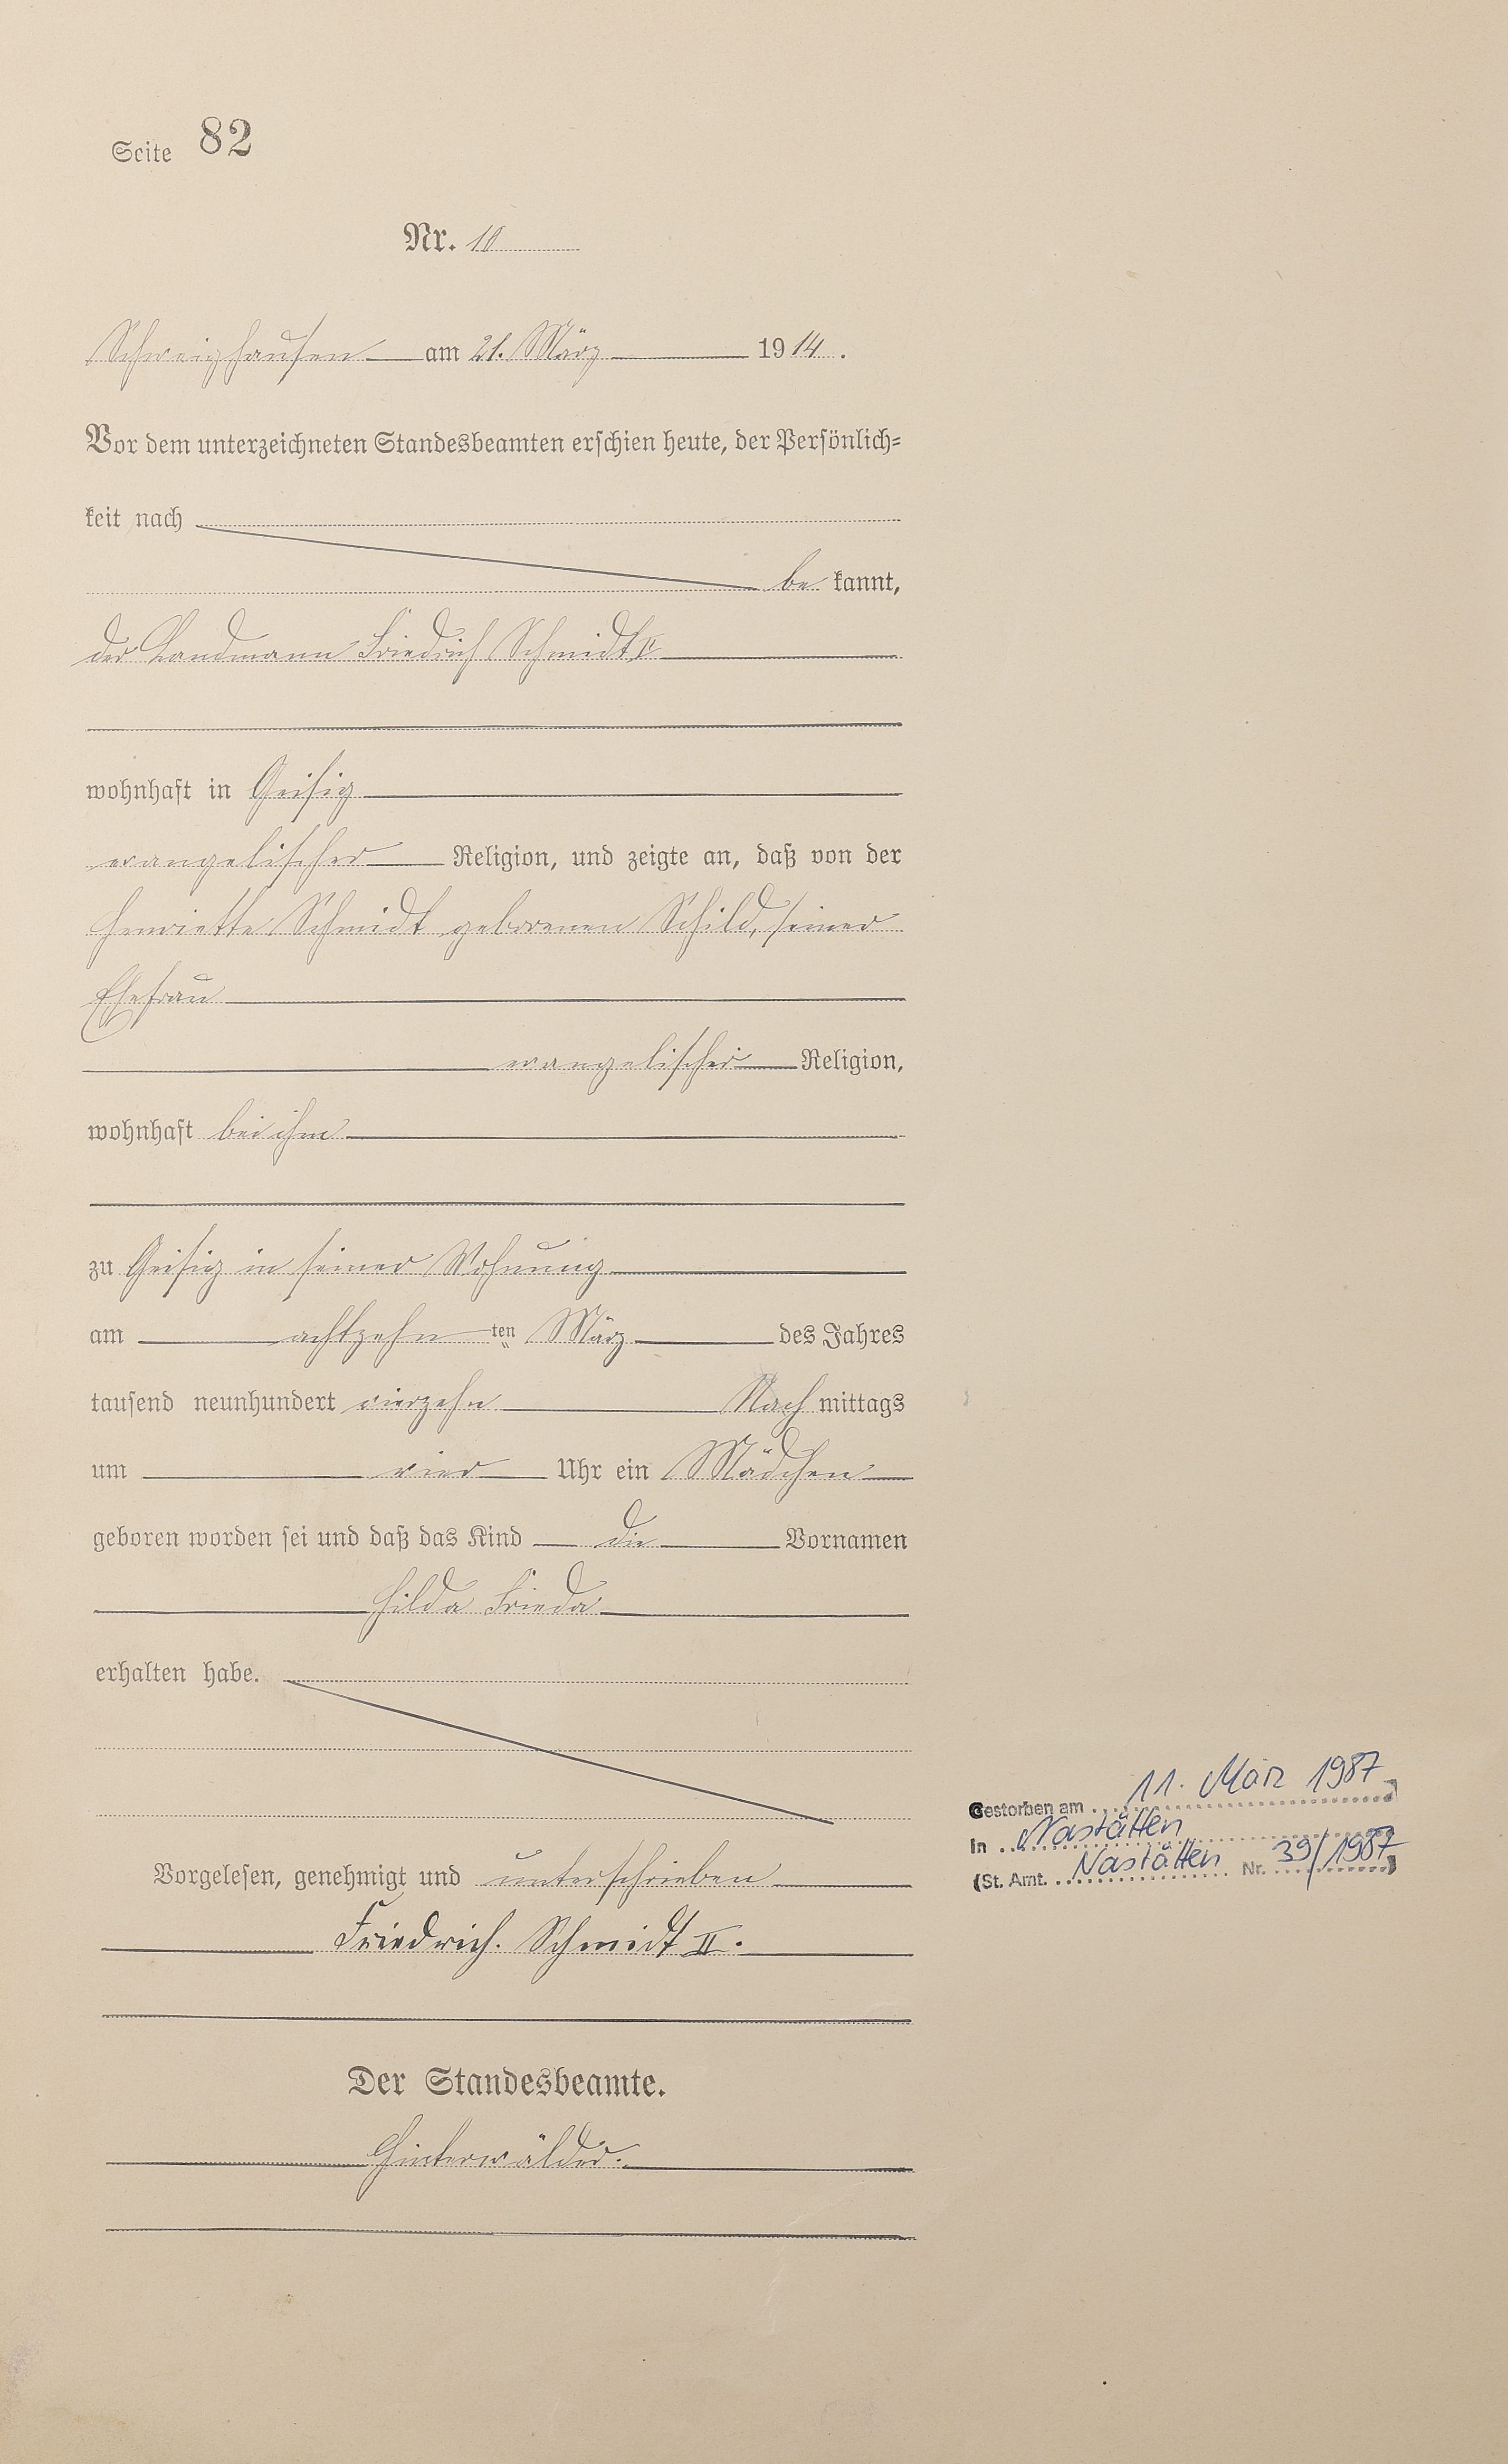 Seite 82
Nr. 10
Schweighausen am 21. März 1914.
Vor dem unterzeichneten Standesbeamten erschien heute, der Persönlich=
keit nach
be kannt,
der Landmann Friedrich Schmidt II
wohnhaft in Geisig
evangelischer Religion, und zeigte an, daß von der
Henriette Schmidt geborenen Schild, seiner
Ehefrau
evangelischer Religion,
wohnhaft bei ihm
zu Geisig in seiner Wohnung
am achtzehn ten März des Jahres
tausend neunhundert vierzehn Nach mittags
um vier Uhr ein Mädchen
geboren worden sei und daß das Kind die Vornamen
Hilda Frieda
erhalten habe.
Gestorben am 11. März 1987
in Nastätten
(St. Amt. Nastätten Nr. 39/1987)
Vorgelesen, genehmigt und unterschrieben
Friedrich. Schmidt II.
Der Standesbeamte.
Hinterwälder.